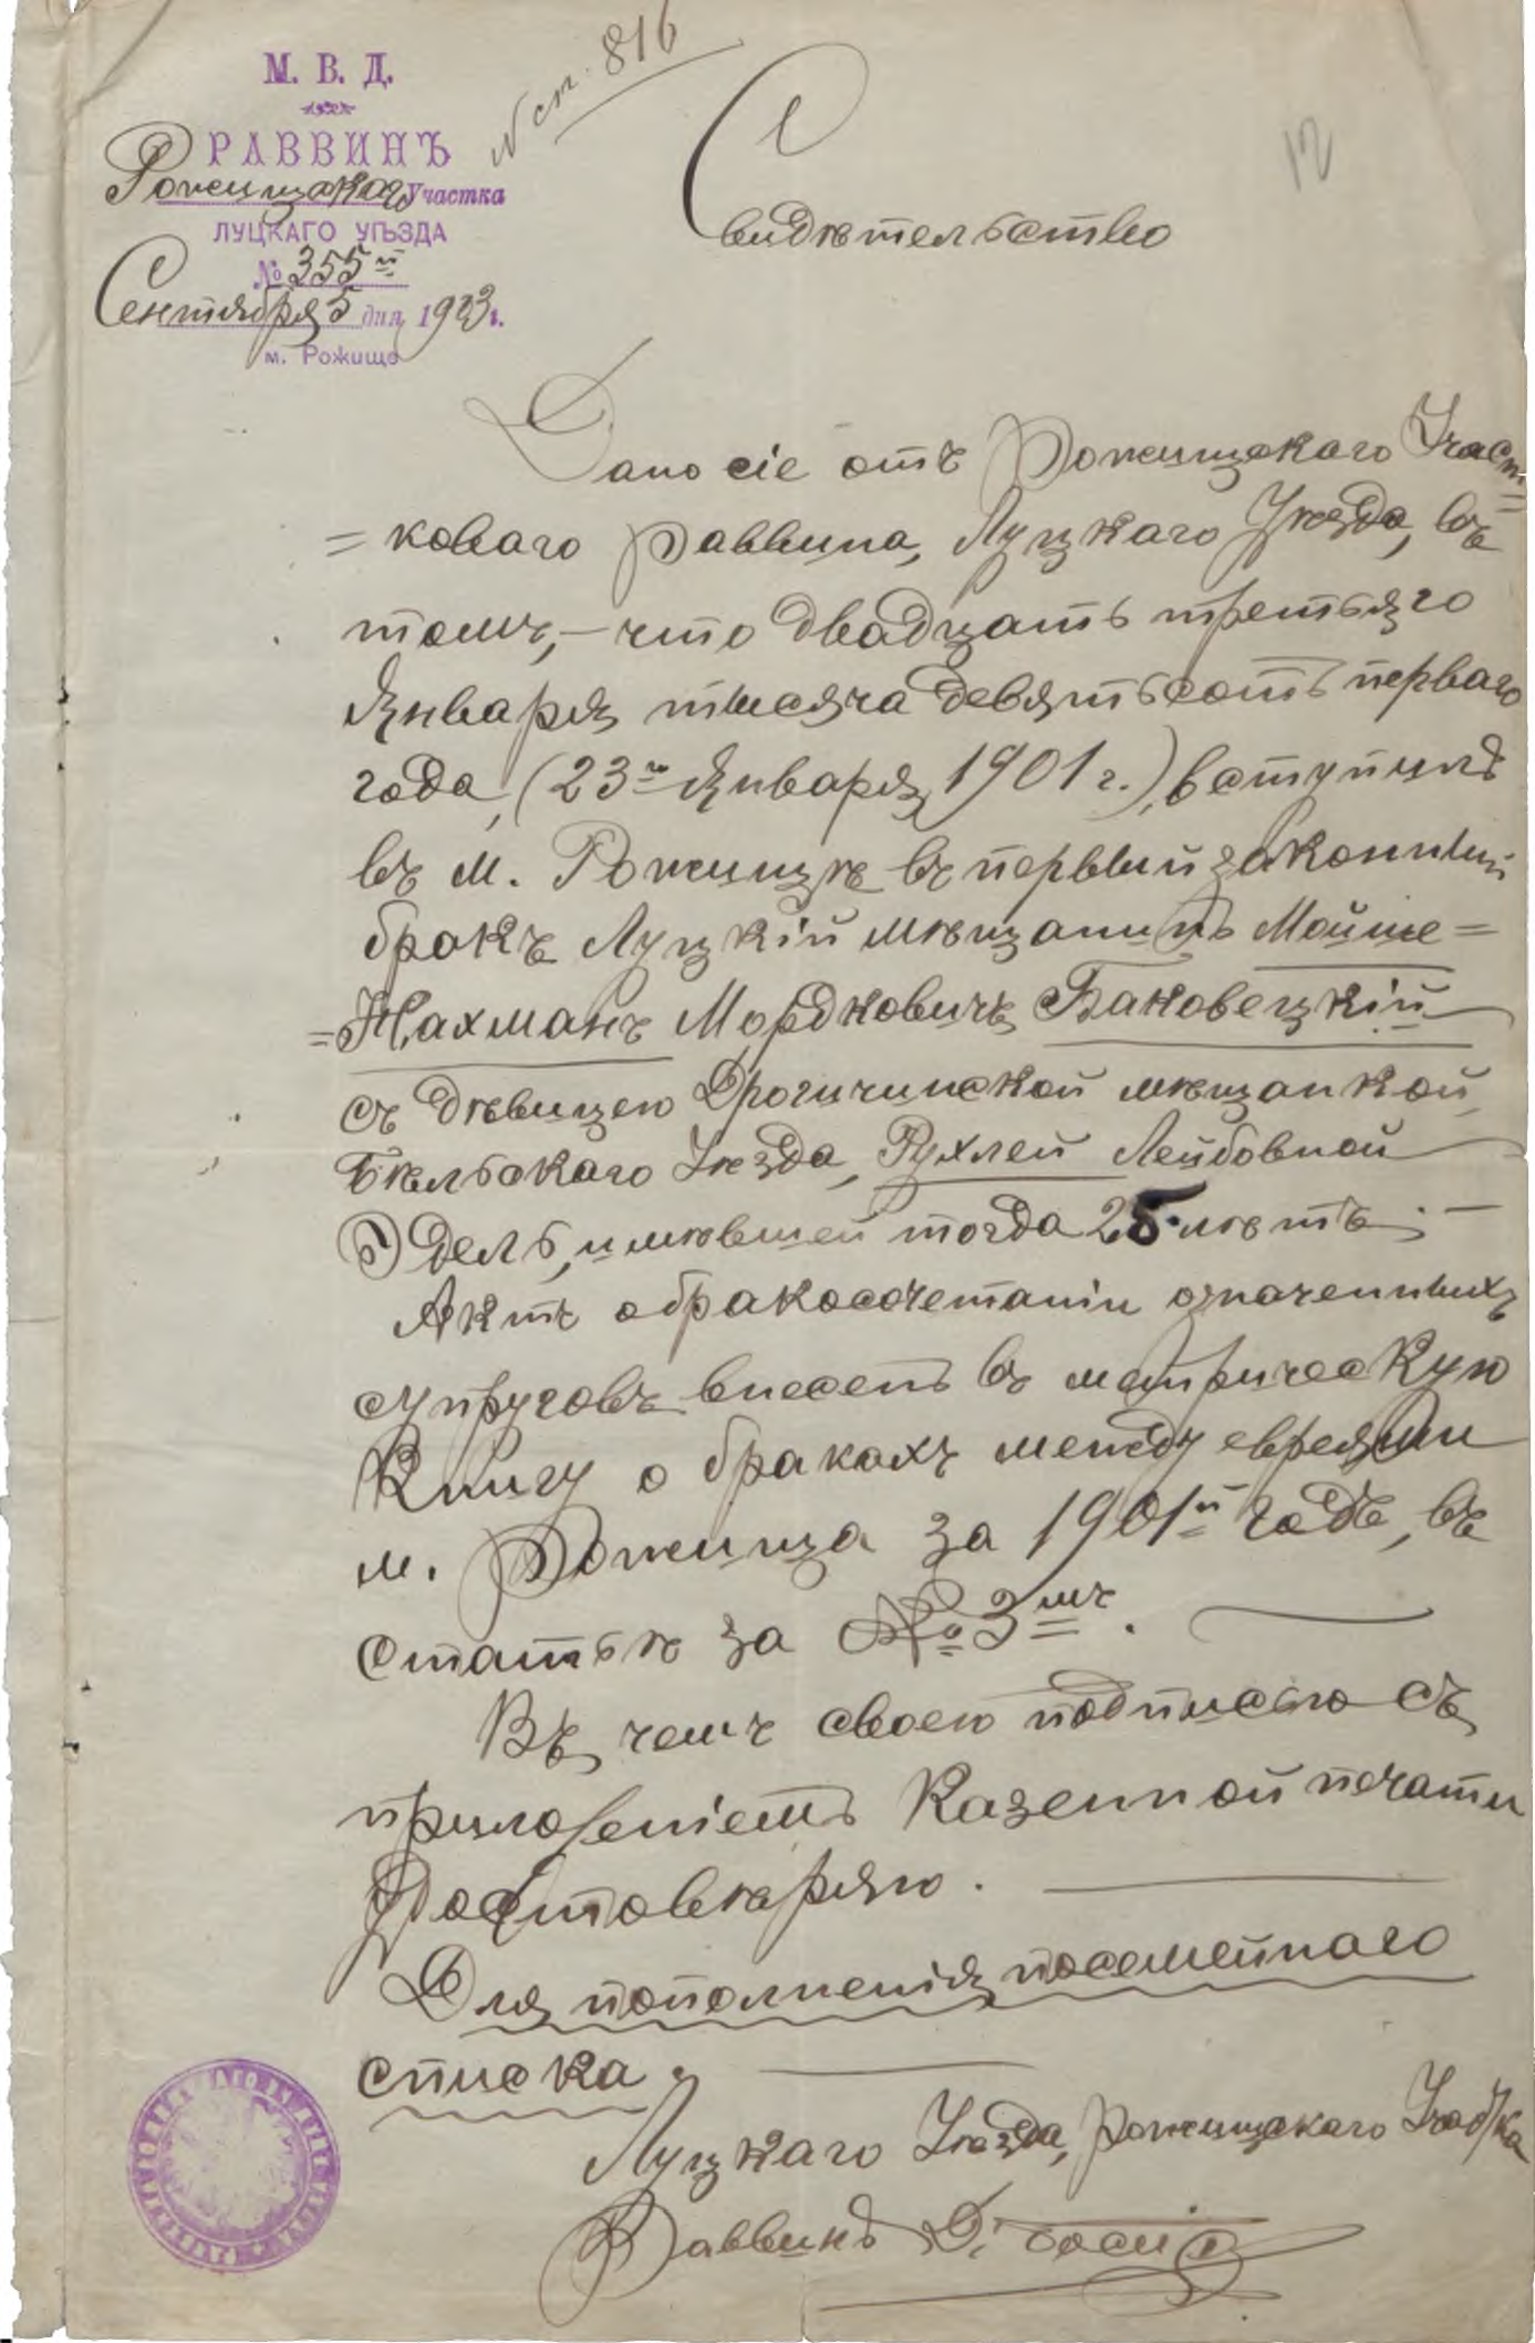 М. В. Д.
РАВВИНЪ
Рожищскаго Участка
ЛУЦКАГО УѢЗДА
№ 355й
Сентября 5 дня 1903 г.
м. Рожище
№ ст. 816
12
Свидѣтельство
Дано сіе отъ Рожищскаго Участ=
=коваго Раввина, Луцкаго Уѣзда, въ
томъ,– что двадцать третьяго
Января тысяча девятьсотъ перваго
года, (23го Января 1901 г.), вступилъ
въ м. Рожищѣ въ первый законный
бракъ Луцкій мѣщанинъ Мойше=
=Нахманъ Мордковичъ Баковецкій
съ дѣвицею Дрогичинской мѣщанкой,
Бѣльскаго Уѣзда, Рухлей Лейбовной
Эдель, имѣвшей тогда 25 лѣтъ; –
Актъ о бракосочетаніи означенныхъ
супруговъ внесенъ въ метрическую
Книгу о бракахъ между евреями
м. Рожища за 1901й годъ, въ
статьѣ за № 3мъ.
Въ чемъ своею подписью съ
приложеніемъ Казенной печати
Удостовѣряю.
Для пополненія посемейнаго
списка.
Луцкаго Уѣзда, Рожищскаго Участка
Раввинъ